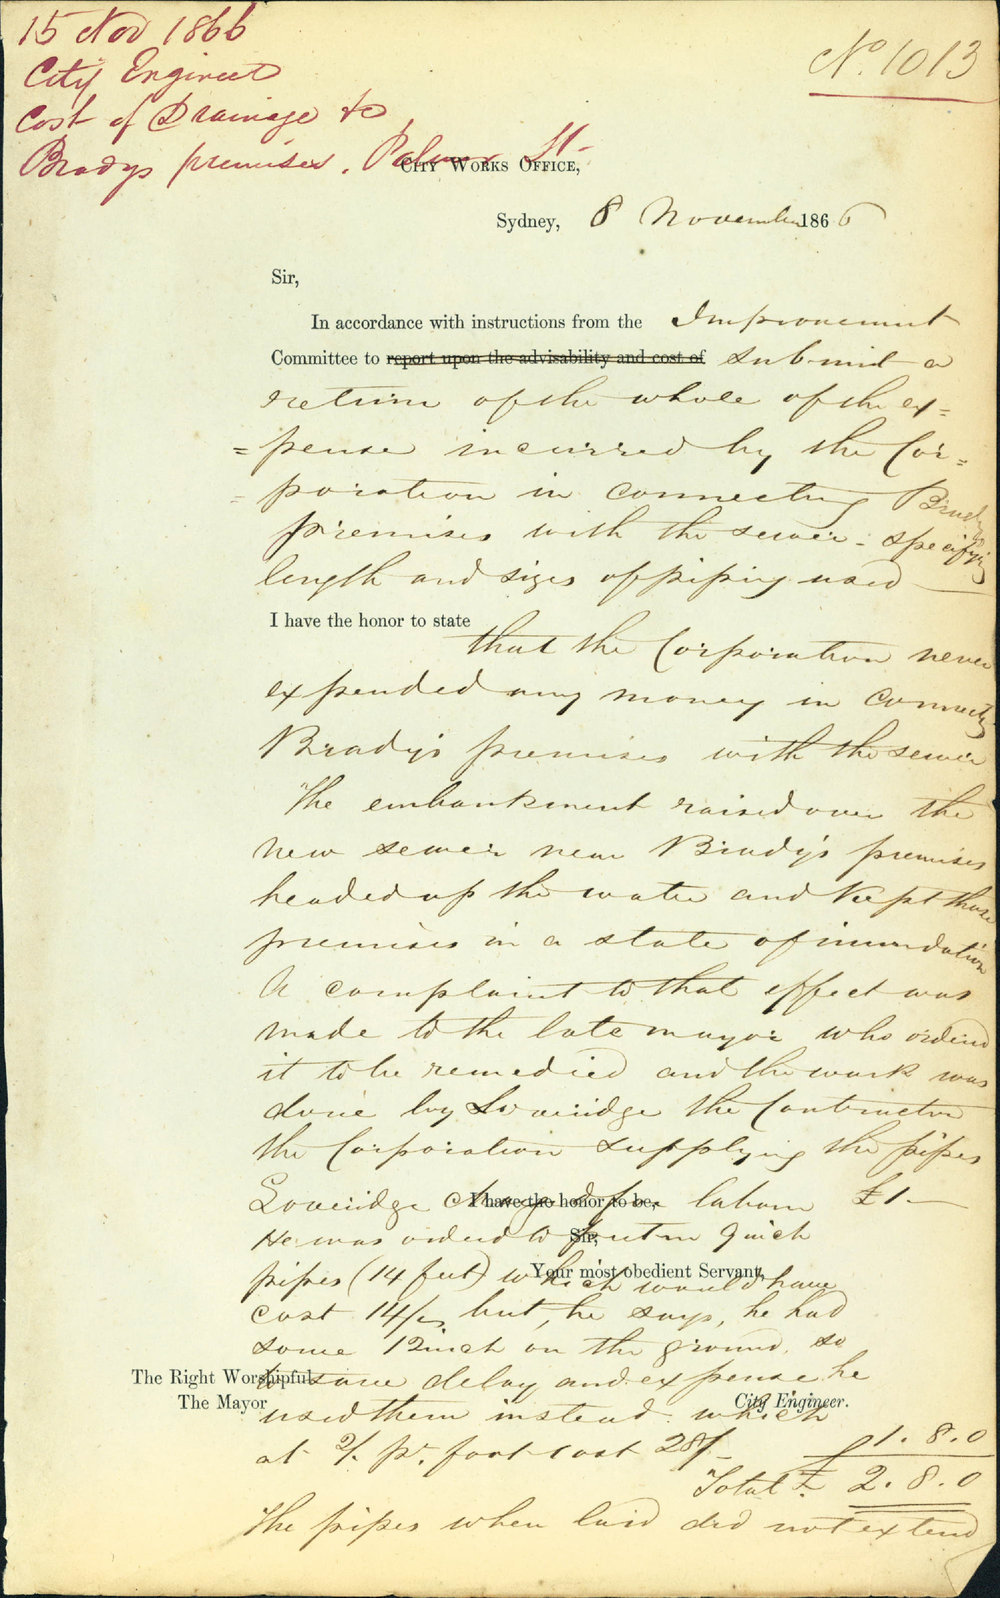 15 Nov 1866
City Engineer
Cost of Drainage to
Bradys premises, Palmer St.
No. 1013
City Works Office,
Sydney, 8 November 1866
Sir,
In accordance with instructions from the Improvement
Committee to report upon the advisability and cost of submit a
return of the whole of the ex=
=pense incurred by the Cor=
=poration in connecting Brady's
premises with the sewer - specifying
length and sizes of piping used
I have the honor to state
that the Corporation never
expended any money in connecting
Brady's premises with the sewer
The embankment raised over the
new sewer near Brady's premises
headed up the water and kept those
premises in a state of inundation
A complaint to that effect was
made to the late mayor who ordered
it to be remedied and the work was
done by Loveridge the Contractor
the Corporation supplying the pipes
Loveridge charged for labour £1 —
I have the honor to be,
He was ordered to put in 9 inch
Sir,
pipes (14 feet) which would have
Your most obedient Servant,
cost 14/- but, he says, he had
some 12 inch on the ground, so
to save delay and expense he
The Right Worshipful
The Mayor
City Engineer.
used them instead which
at 2/. pr. foot cost 28/- 1.8.0
Total £ 2.8.0
The pipes when laid did not extend